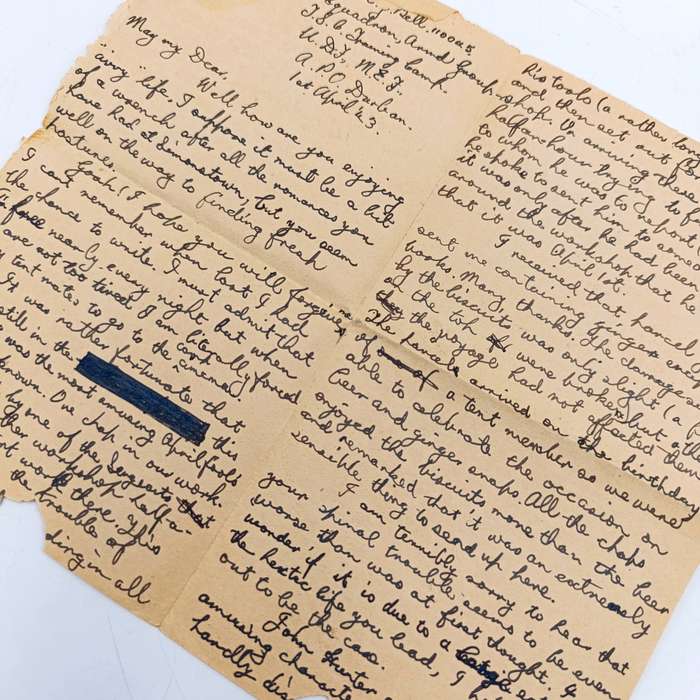 Bell. 110025
Squadron, Armd Group,
T.S.C. Training Camp
U.D.F., M.E.F.
A.P.O. Durban.
1st April '43.
May my Dear,
Well how are you enjoying
"airy" life. I suppose it must be a bit
of a wrench after all the romances you
have had at Simonstown, but you seem
well on the way to finding fresh
pastures.
Gosh! I hope you will forgive me
I can't remember when last I had
the chance to write. I must admit that
free nearly every night but when
are not too tired I am literally forced
tent mates to go to the (camp cinema)
It was rather fortunate that
still in the
this
was the most amusing April fools
known. One chap in our work-
by one of the Sergeants that
other workshop half-a-
work there. This
the trouble of
ding in all
his tools (a rather long
and then set out for
shop. On arriving there
half an hour trying to f
to whom he was to report
he spoke to sent him to some
it was only after he had been
around the workshop that he
that it was April 1st.
I received that parcel
sent me containing gingers and
books. Many thanks. The damage
by the biscuits was only slight (a f
on the top were broken but othe
the voyage had not affected them
The parcel arrived on the birthday
of a tent member so we were
able to celebrate the occasion on
beer and ginger snaps. All the chaps
enjoyed the biscuits more than the beer
and remarked that it was an extremely
sensible thing to send up here.
I am terribly sorry to hear that
your spinal trouble seems to be even
worse than was at first thought.
wonder if it is due to a
the hectic life you lead, I
out to be the case.
John Hunter
amusing character
hardly dis